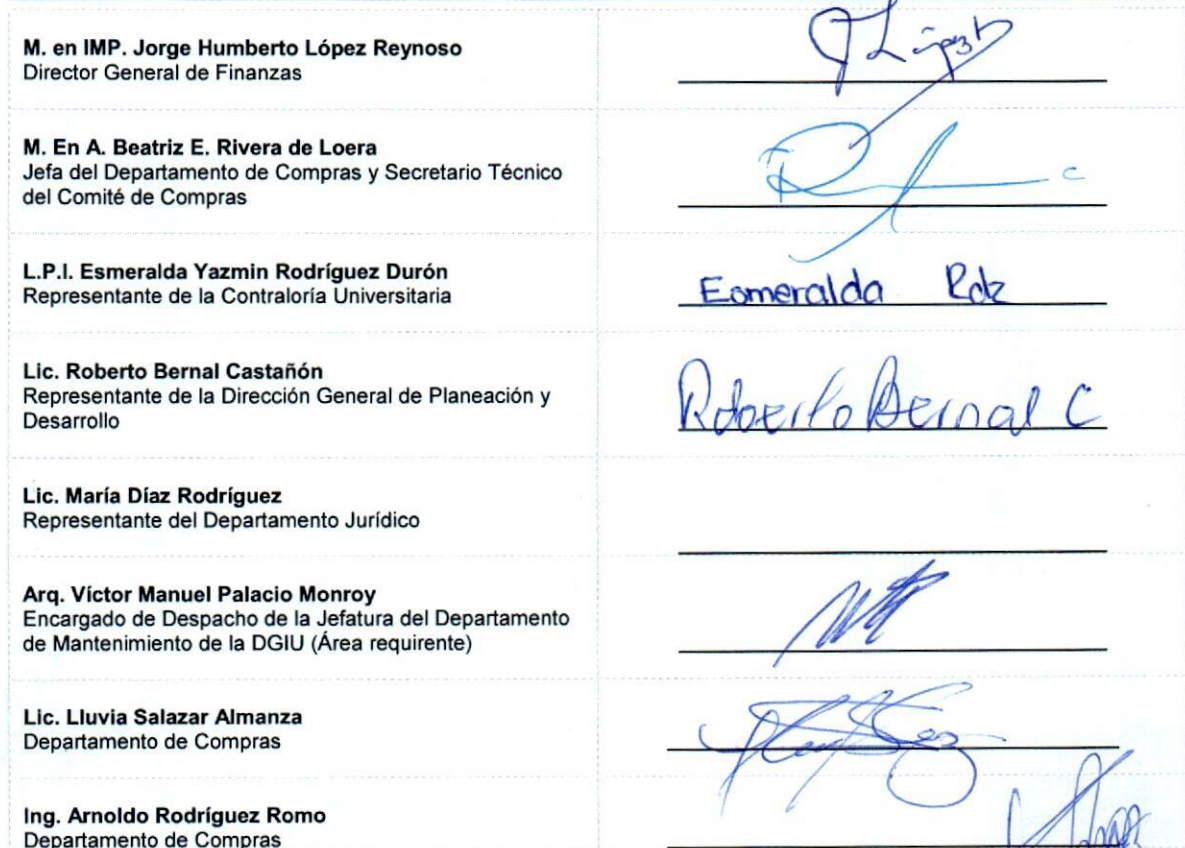 M. en IMP. Jorge Humberto López Reynoso
Director General de Finanzas
J López
M. En A. Beatriz E. Rivera de Loera
Jefa del Departamento de Compras y Secretario Técnico
del Comité de Compras
L.P.I. Esmeralda Yazmin Rodríguez Durón
Representante de la Contraloría Universitaria
Esmeralda Rdz
Lic. Roberto Bernal Castañón
Representante de la Dirección General de Planeación y
Desarrollo
Roberto Bernal C
Lic. María Díaz Rodríguez
Representante del Departamento Jurídico
Arq. Víctor Manuel Palacio Monroy
Encargado de Despacho de la Jefatura del Departamento
de Mantenimiento de la DGIU (Área requirente)
Lic. Lluvia Salazar Almanza
Departamento de Compras
Ing. Arnoldo Rodríguez Romo
Departamento de Compras